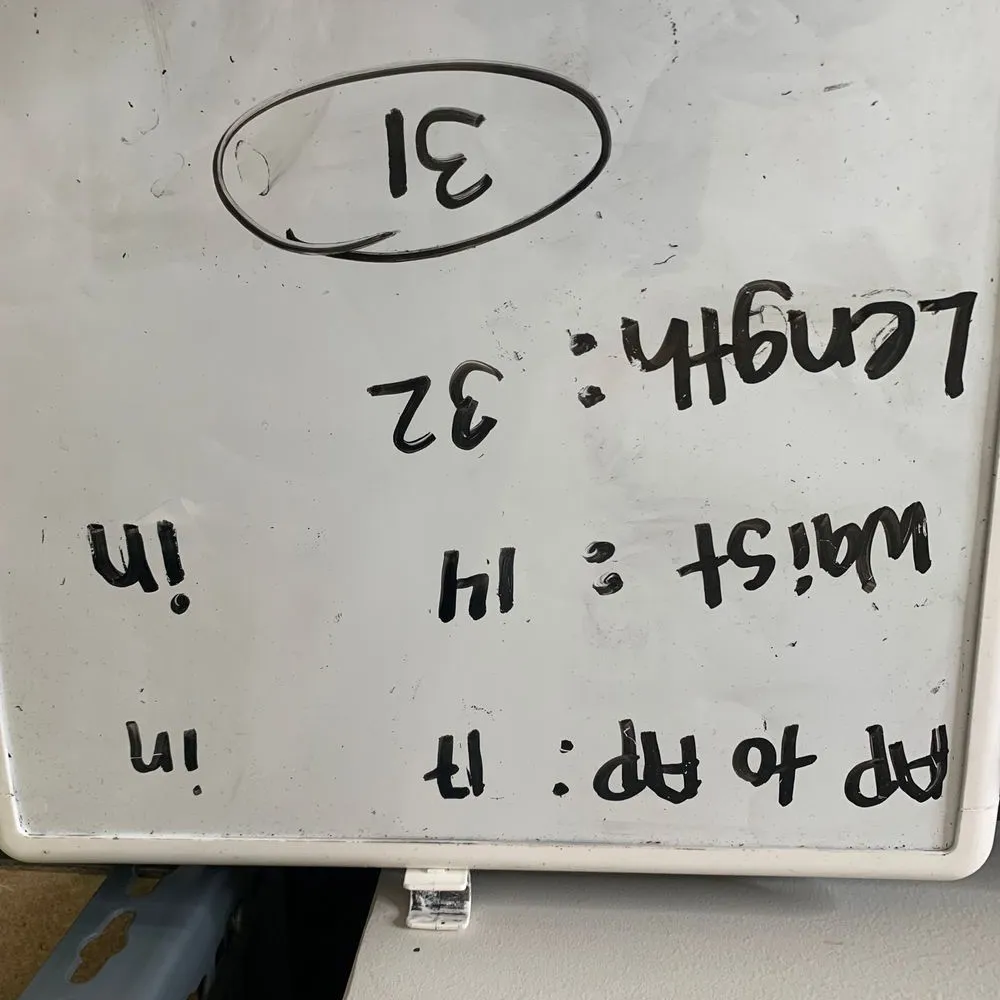 AP to AP: 17 in
Waist: 14 in
Length: 32
31